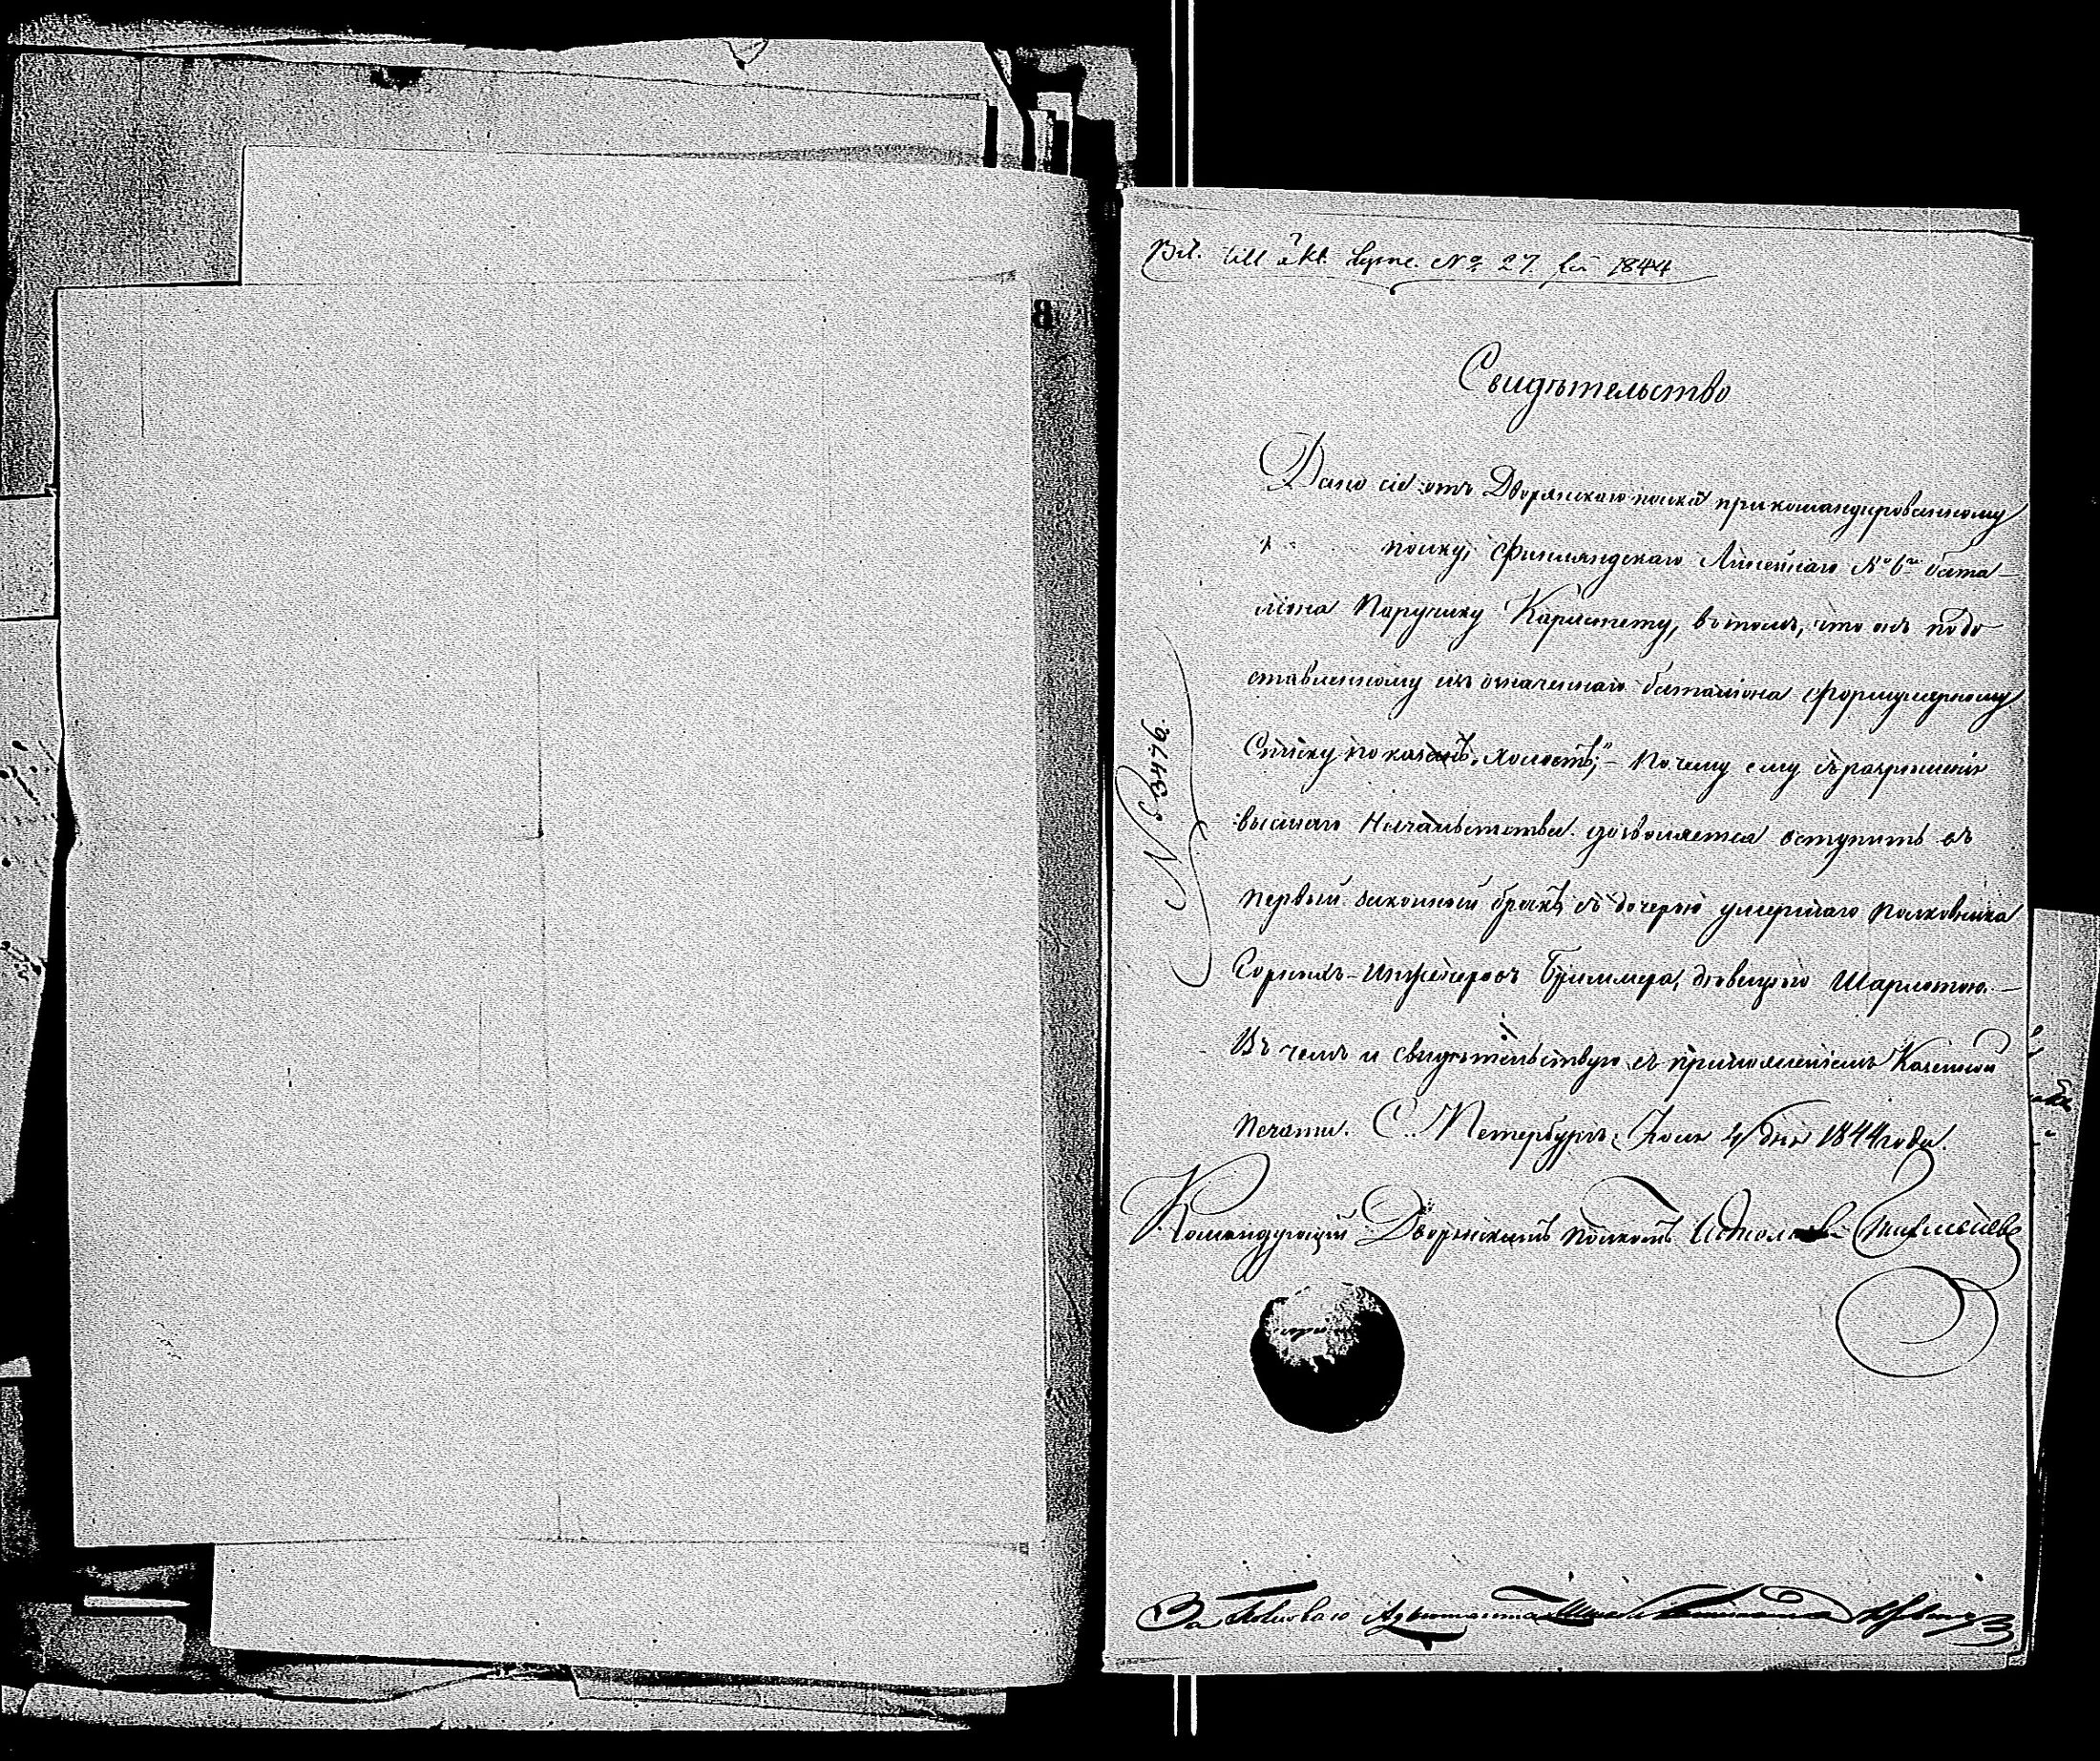 Bil. till äkt. Lysn. No 27 för 1844
Свидѣтельство
Дано сіе отъ Дворянскаго полка прикомандированному
къ полку, Финляндскаго Линейнаго № 6го бата-
ліона Поручику Карлстету, въ томъ, что онъ по до
ставленному изъ означеннаго баталіона формулярному
Списку показанъ „холостъ;“ – По чему ему съ разрѣшенія
высшаго Начальства дозволяется вступить въ
первый законный бракъ съ дочерью умершаго Полковника
Горныхъ-Инженеровъ Бриммера, дѣвицею Шарлотою. –
Въ чемъ и свидѣтельствую съ приложеніемъ Казенной
печати. С. Петербургъ, Іюля 4 дня 1844 года.
№ 3479.
Командующій Дворянскимъ полкомъ
За Полковаго Адъютанта